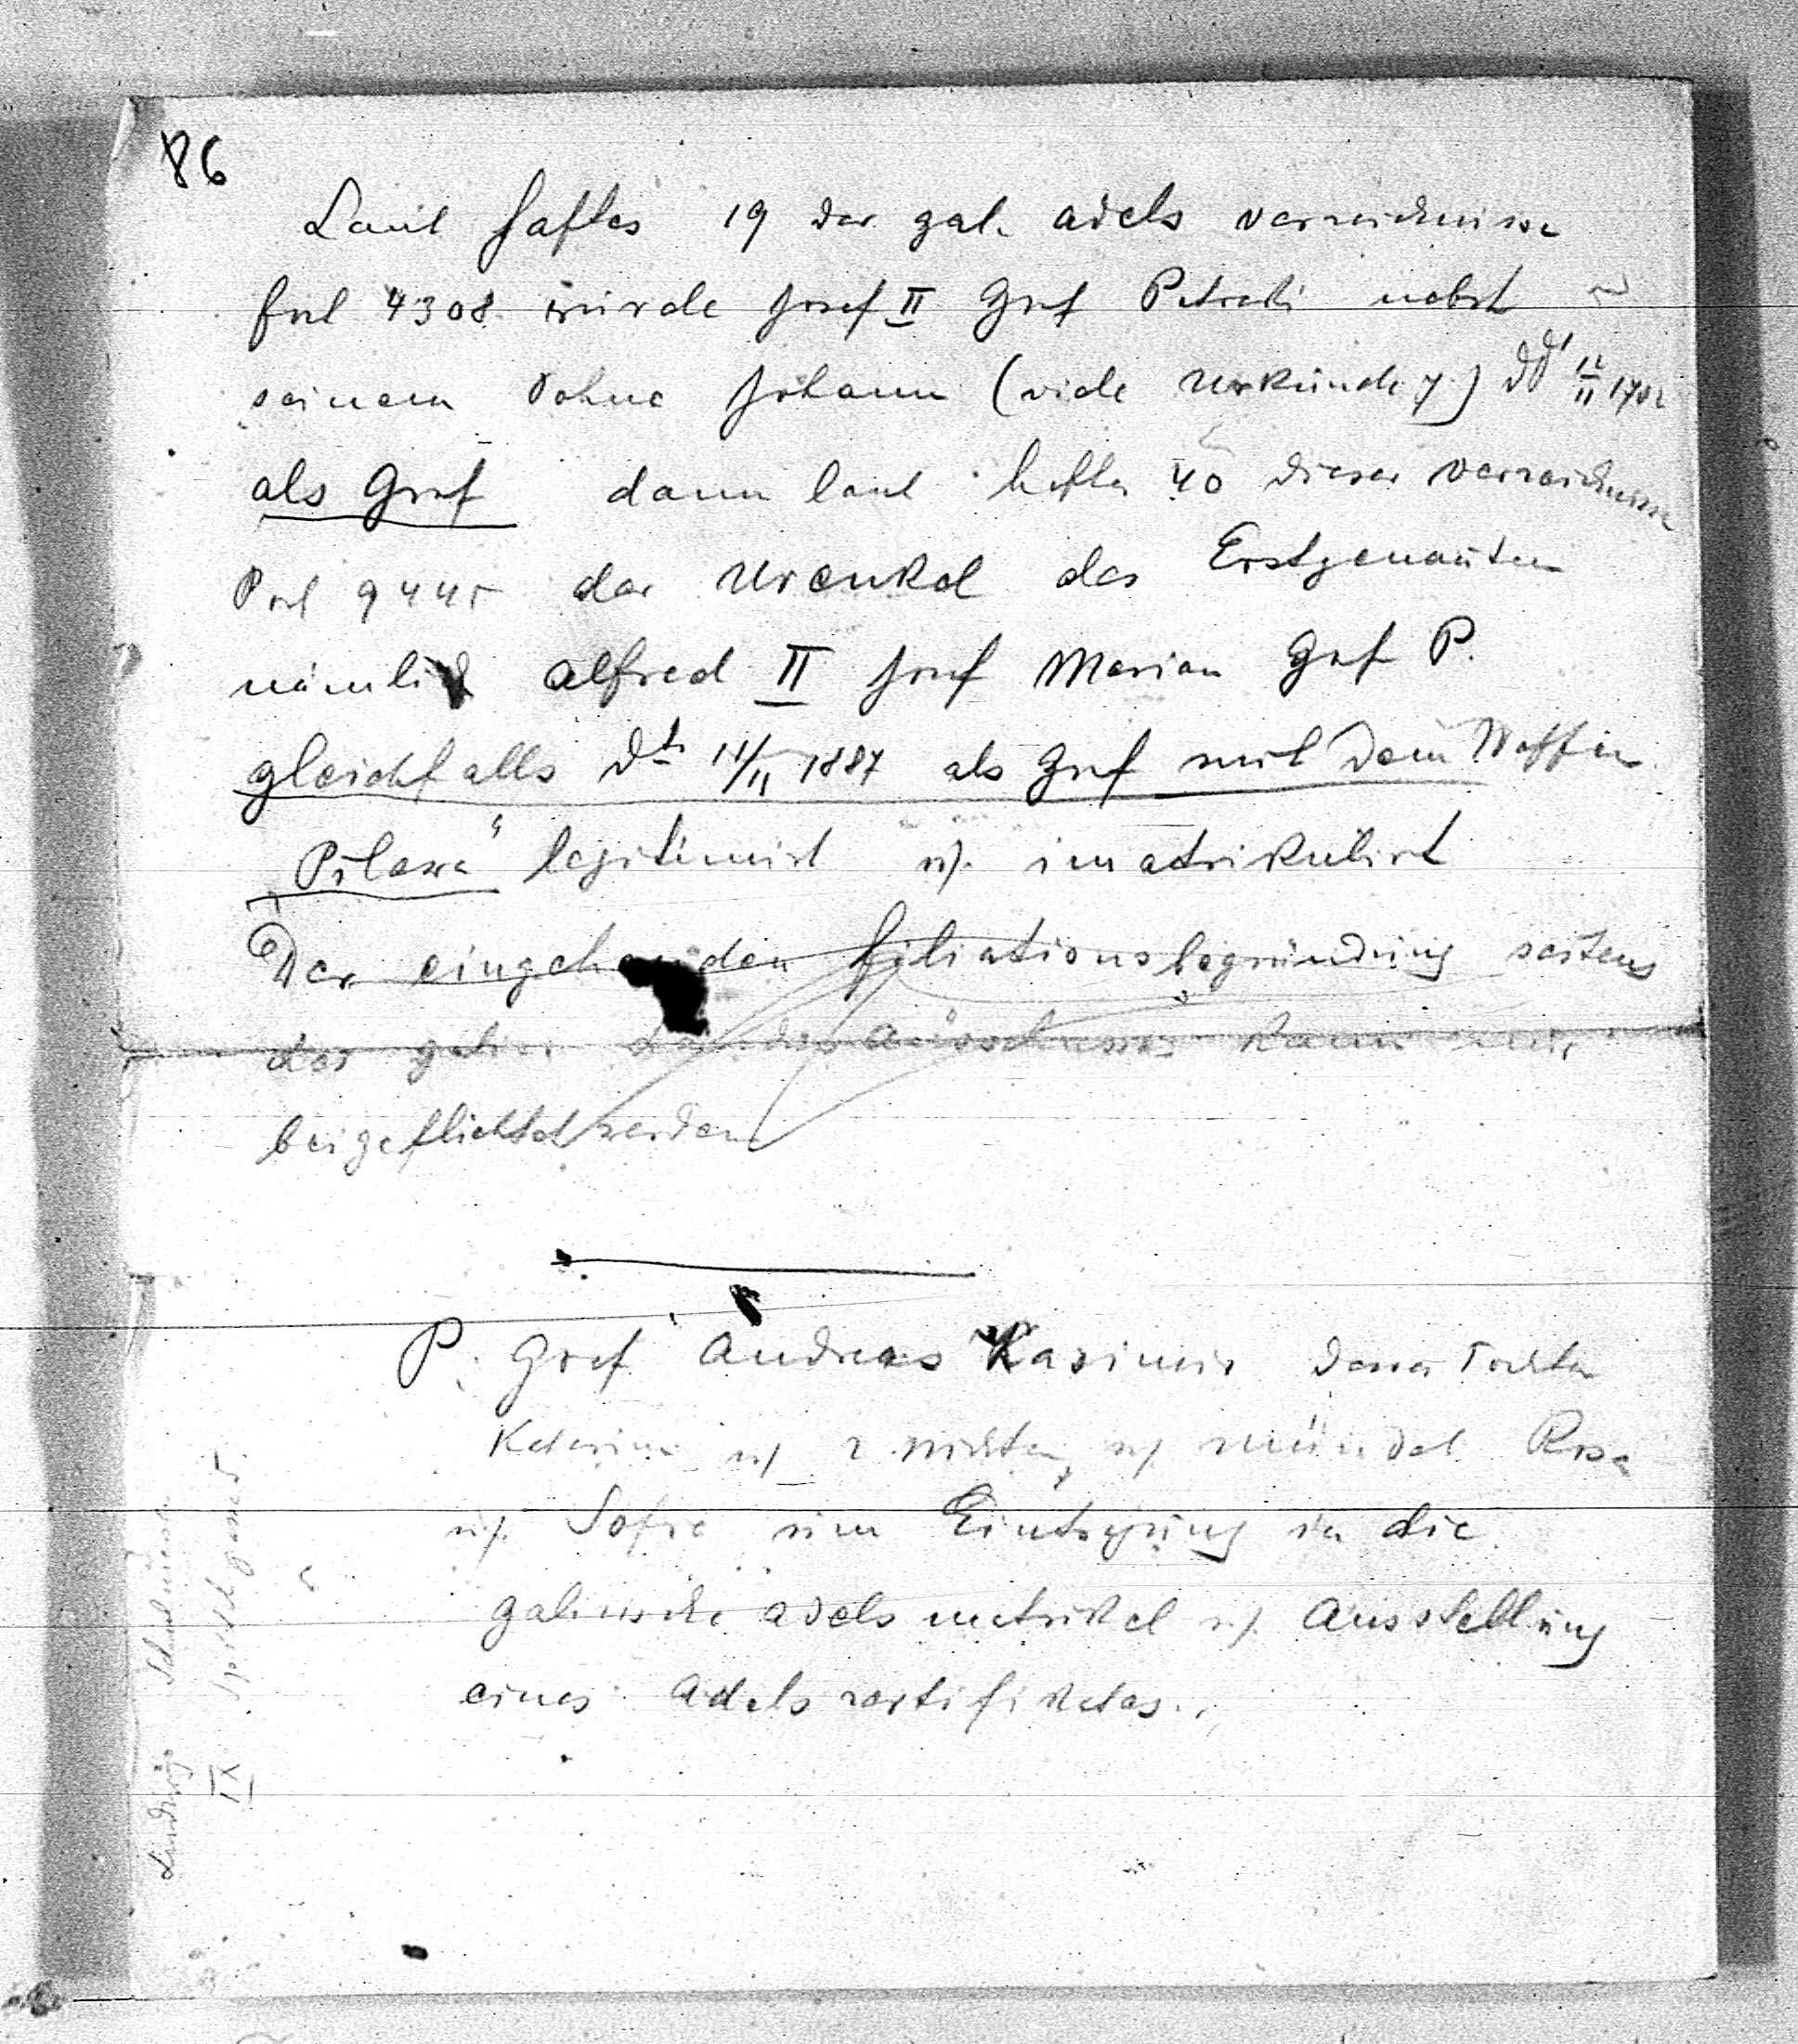 86
Laut Heftes 19 der gal. Adels verzeichnisse
fol 4308 wurde Josef II Graf Potocki nebst
seinem Sohne Johann (vide Urkunde 7) dd 12/11 1782
als Graf dann laut Heftes 40 dieser Verzeichnisse
Pol 9445 der Urenkel des Erstgenañten
nämlich Alfred II Josef Marian Graf P.
gleichfalls dt 11/11 1887 als Graf mit dem Waffen
„Pilawa“ legitimirt u. imatrikulirt
Der eingehenden Filiationsbegründung seitens
des galiz. Landes Ausschusses kann nur
beigepflichtet werden
P. Graf Andreas Kasimir dessen Tochter
Katarina u/ 2 Nichten u/ Mündel Rosa
u/. Sofie um Eintragung in die
galizische Adels matrikel u/. Ausstellung
eines Adels zertifikates.
Ludwig
IX